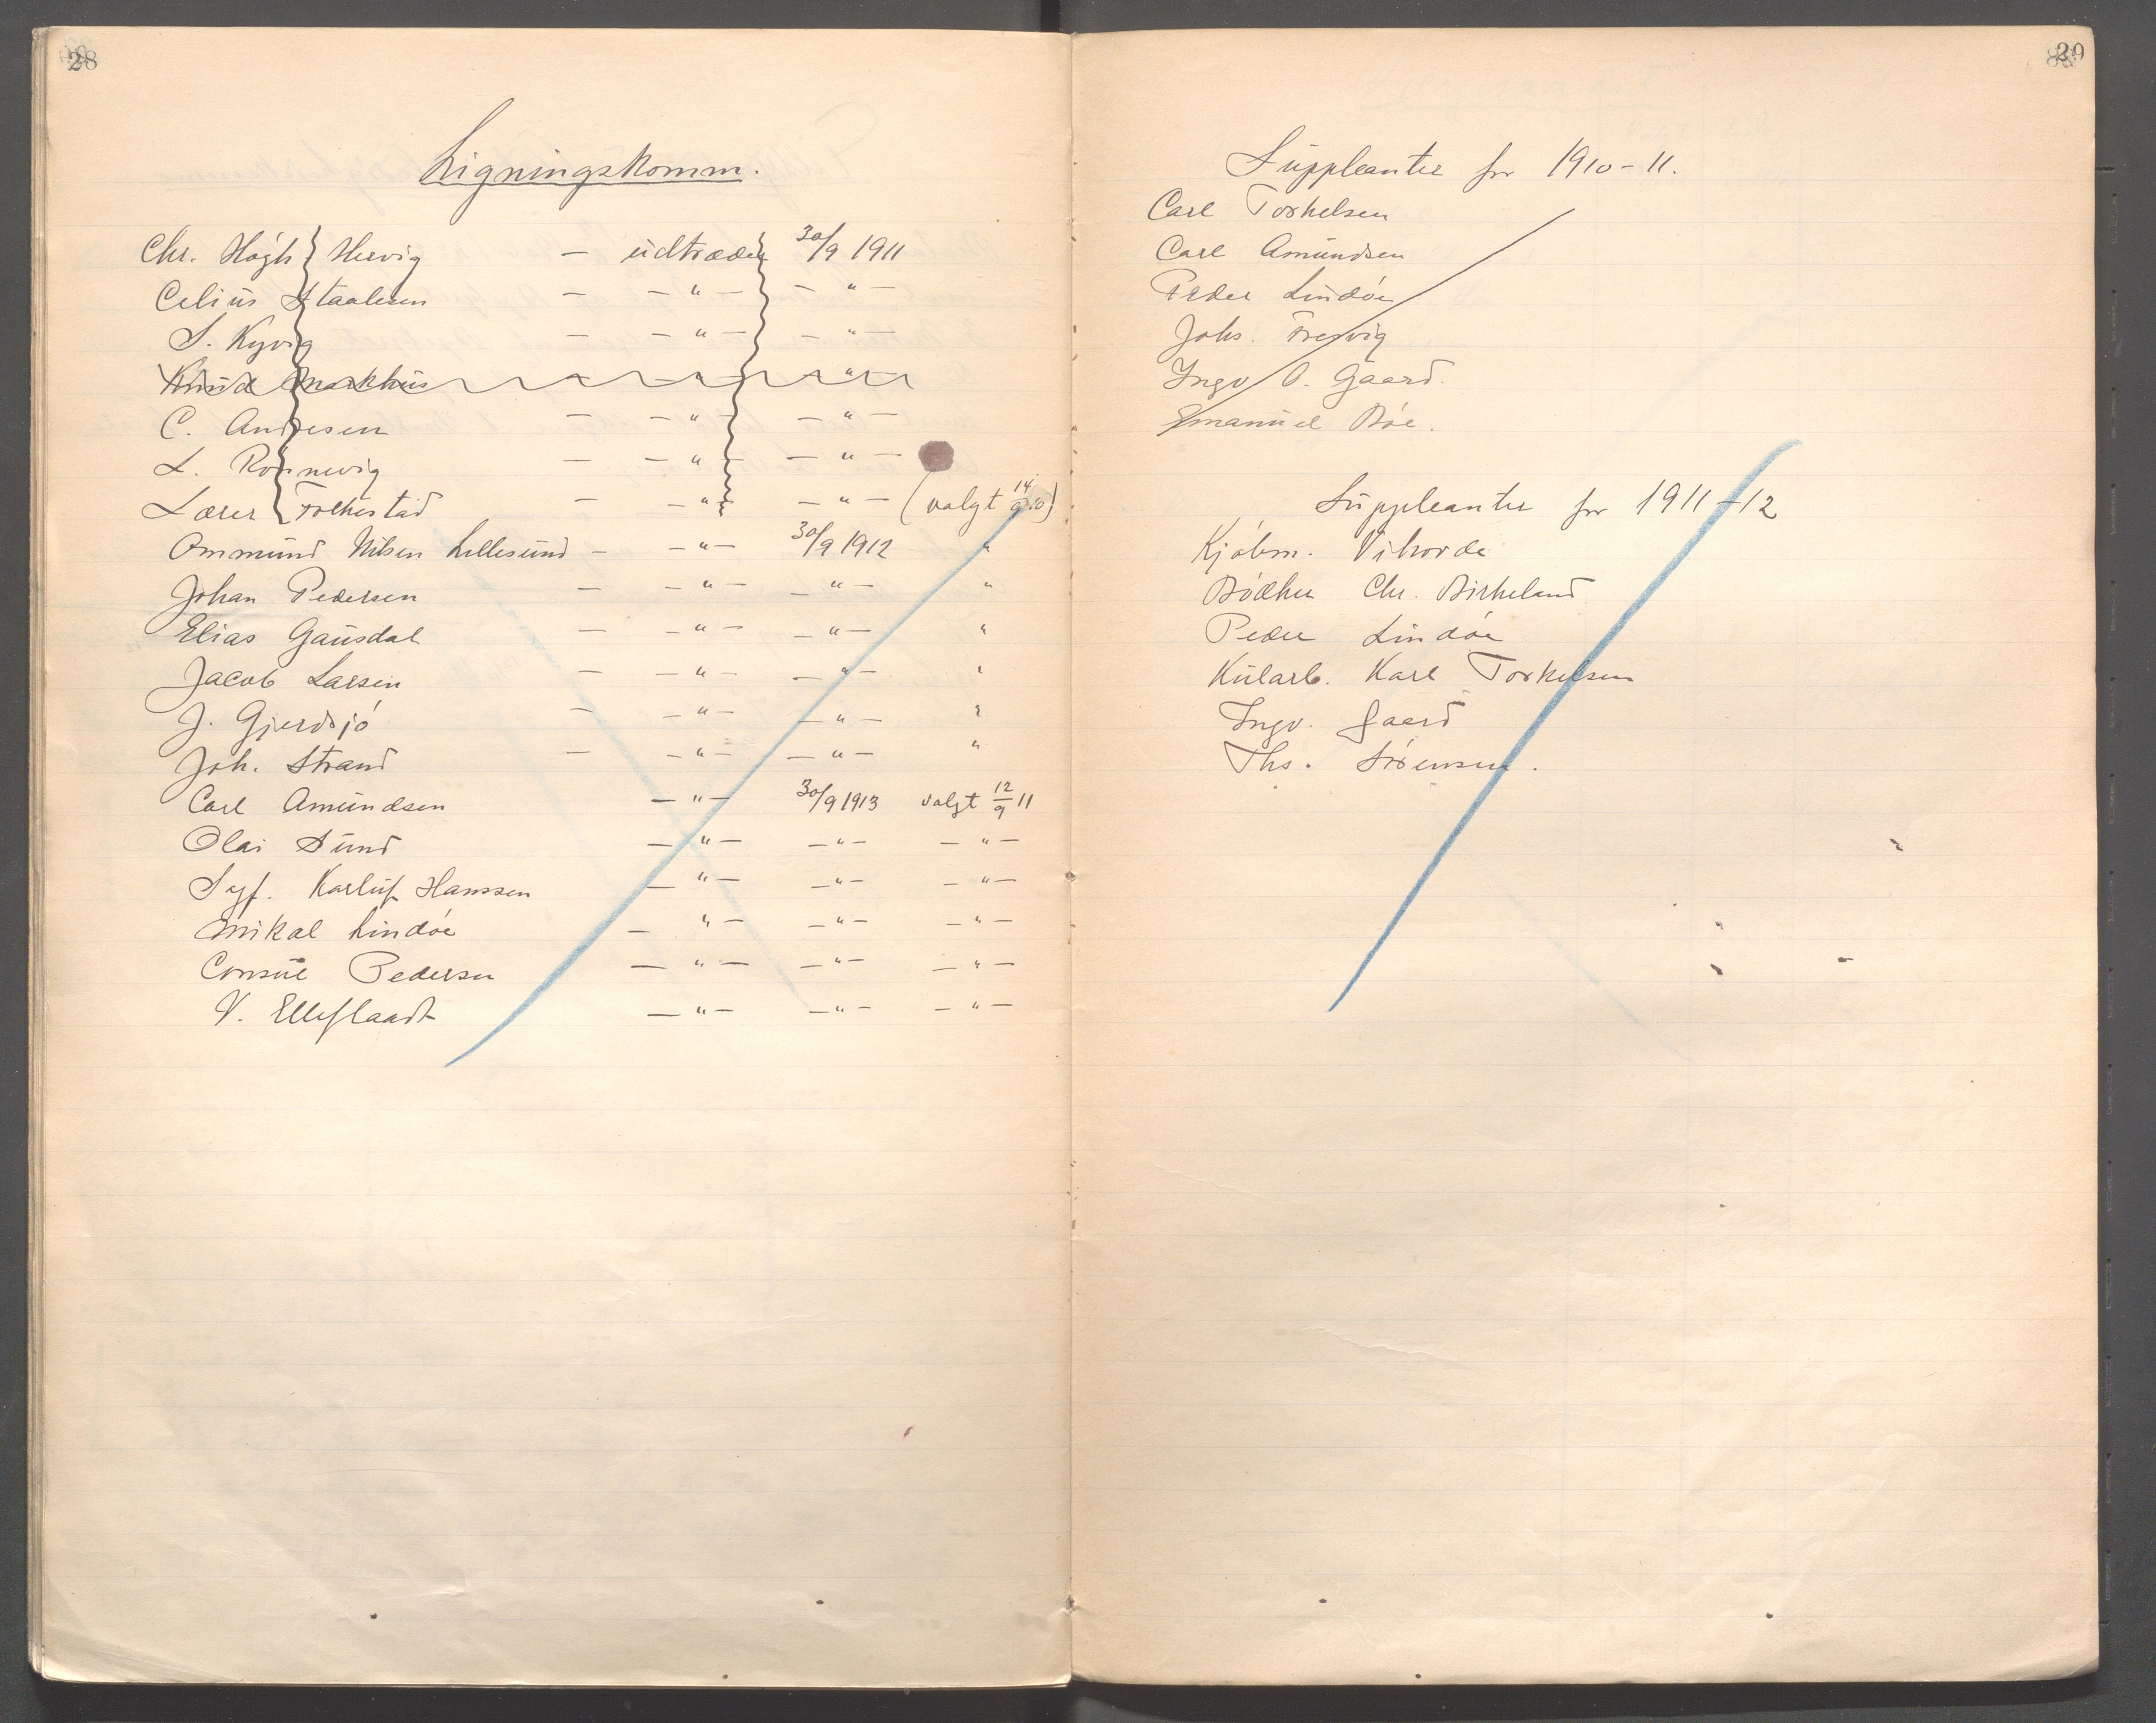 28
Ligningskomm.
Chr. Høgh Hervig — udtræder 30/9 1911
Celius Staalesen — — " — — " —
S. Kyvig — — " — — " —
Knud Markhus " "
C. Andresen — — " — — " —
L. Rønnevig — — " — — " —
Lærer Folkestad — — " — — " — (valgt 14/9 10)
Ommund Nilsen Lillesund — — " — 30/9 1912 "
Johan Pedersen — — " — — " — "
Elias Gausdal — — " — — " — "
Jacob Larsen — — " — — " — "
J. Gjerdsjø — — " — — " — "
Joh. Strand — — " — — " — "
Carl Amundsen — " — 30/9 1913 valgt 12/9 11
Olai Sund — " — — " — — " —
Sgf. Karluf Hanssen — " — — " — — " —
Mikal Lindøe — " — — " — — " —
Consul Pedersen — " — — " — — " —
V. Elleflaadt — " — — " — — " —
29
Suppleanter for 1910-11.
Carl Torkelsen
Carl Amundsen
Peder Lindøe
Johs. Trervig
Ingv O. Gaard.
Emanuel Bøe.
Suppleanter for 1911-12
Kjøbm. Vikorde
Bødker Chr. Birkeland
Peder Lindøe
Kularb. Karl Torkelsen
Ingv. Gaard
Ths. Sørensen.